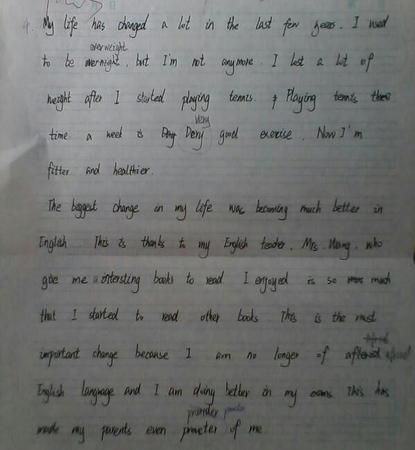 4. My life has changed a lot in the last few years. I used
overweight
to be overnight, but I'm not anymore. I lost a lot of
weight after I started playing tennis. Playing tennis three
very
time a week is Deny good exercise. Now I'm
fitter and healthier.
The biggest change in my life was becoming much better in
English This is thanks to my English teacher, Mrs. Wang, who
gave me intersting books to read I enjoyed is so much
that I started to read other books This is the most
important change because I am no longer of afraid
English language and I am doing better in my exams This has
prouder
made my parents even prouter of me